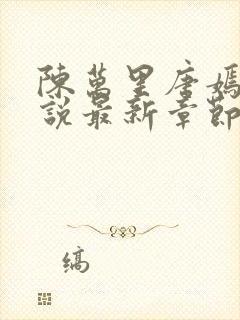 陳萬里唐嫣
說最新章節
縞